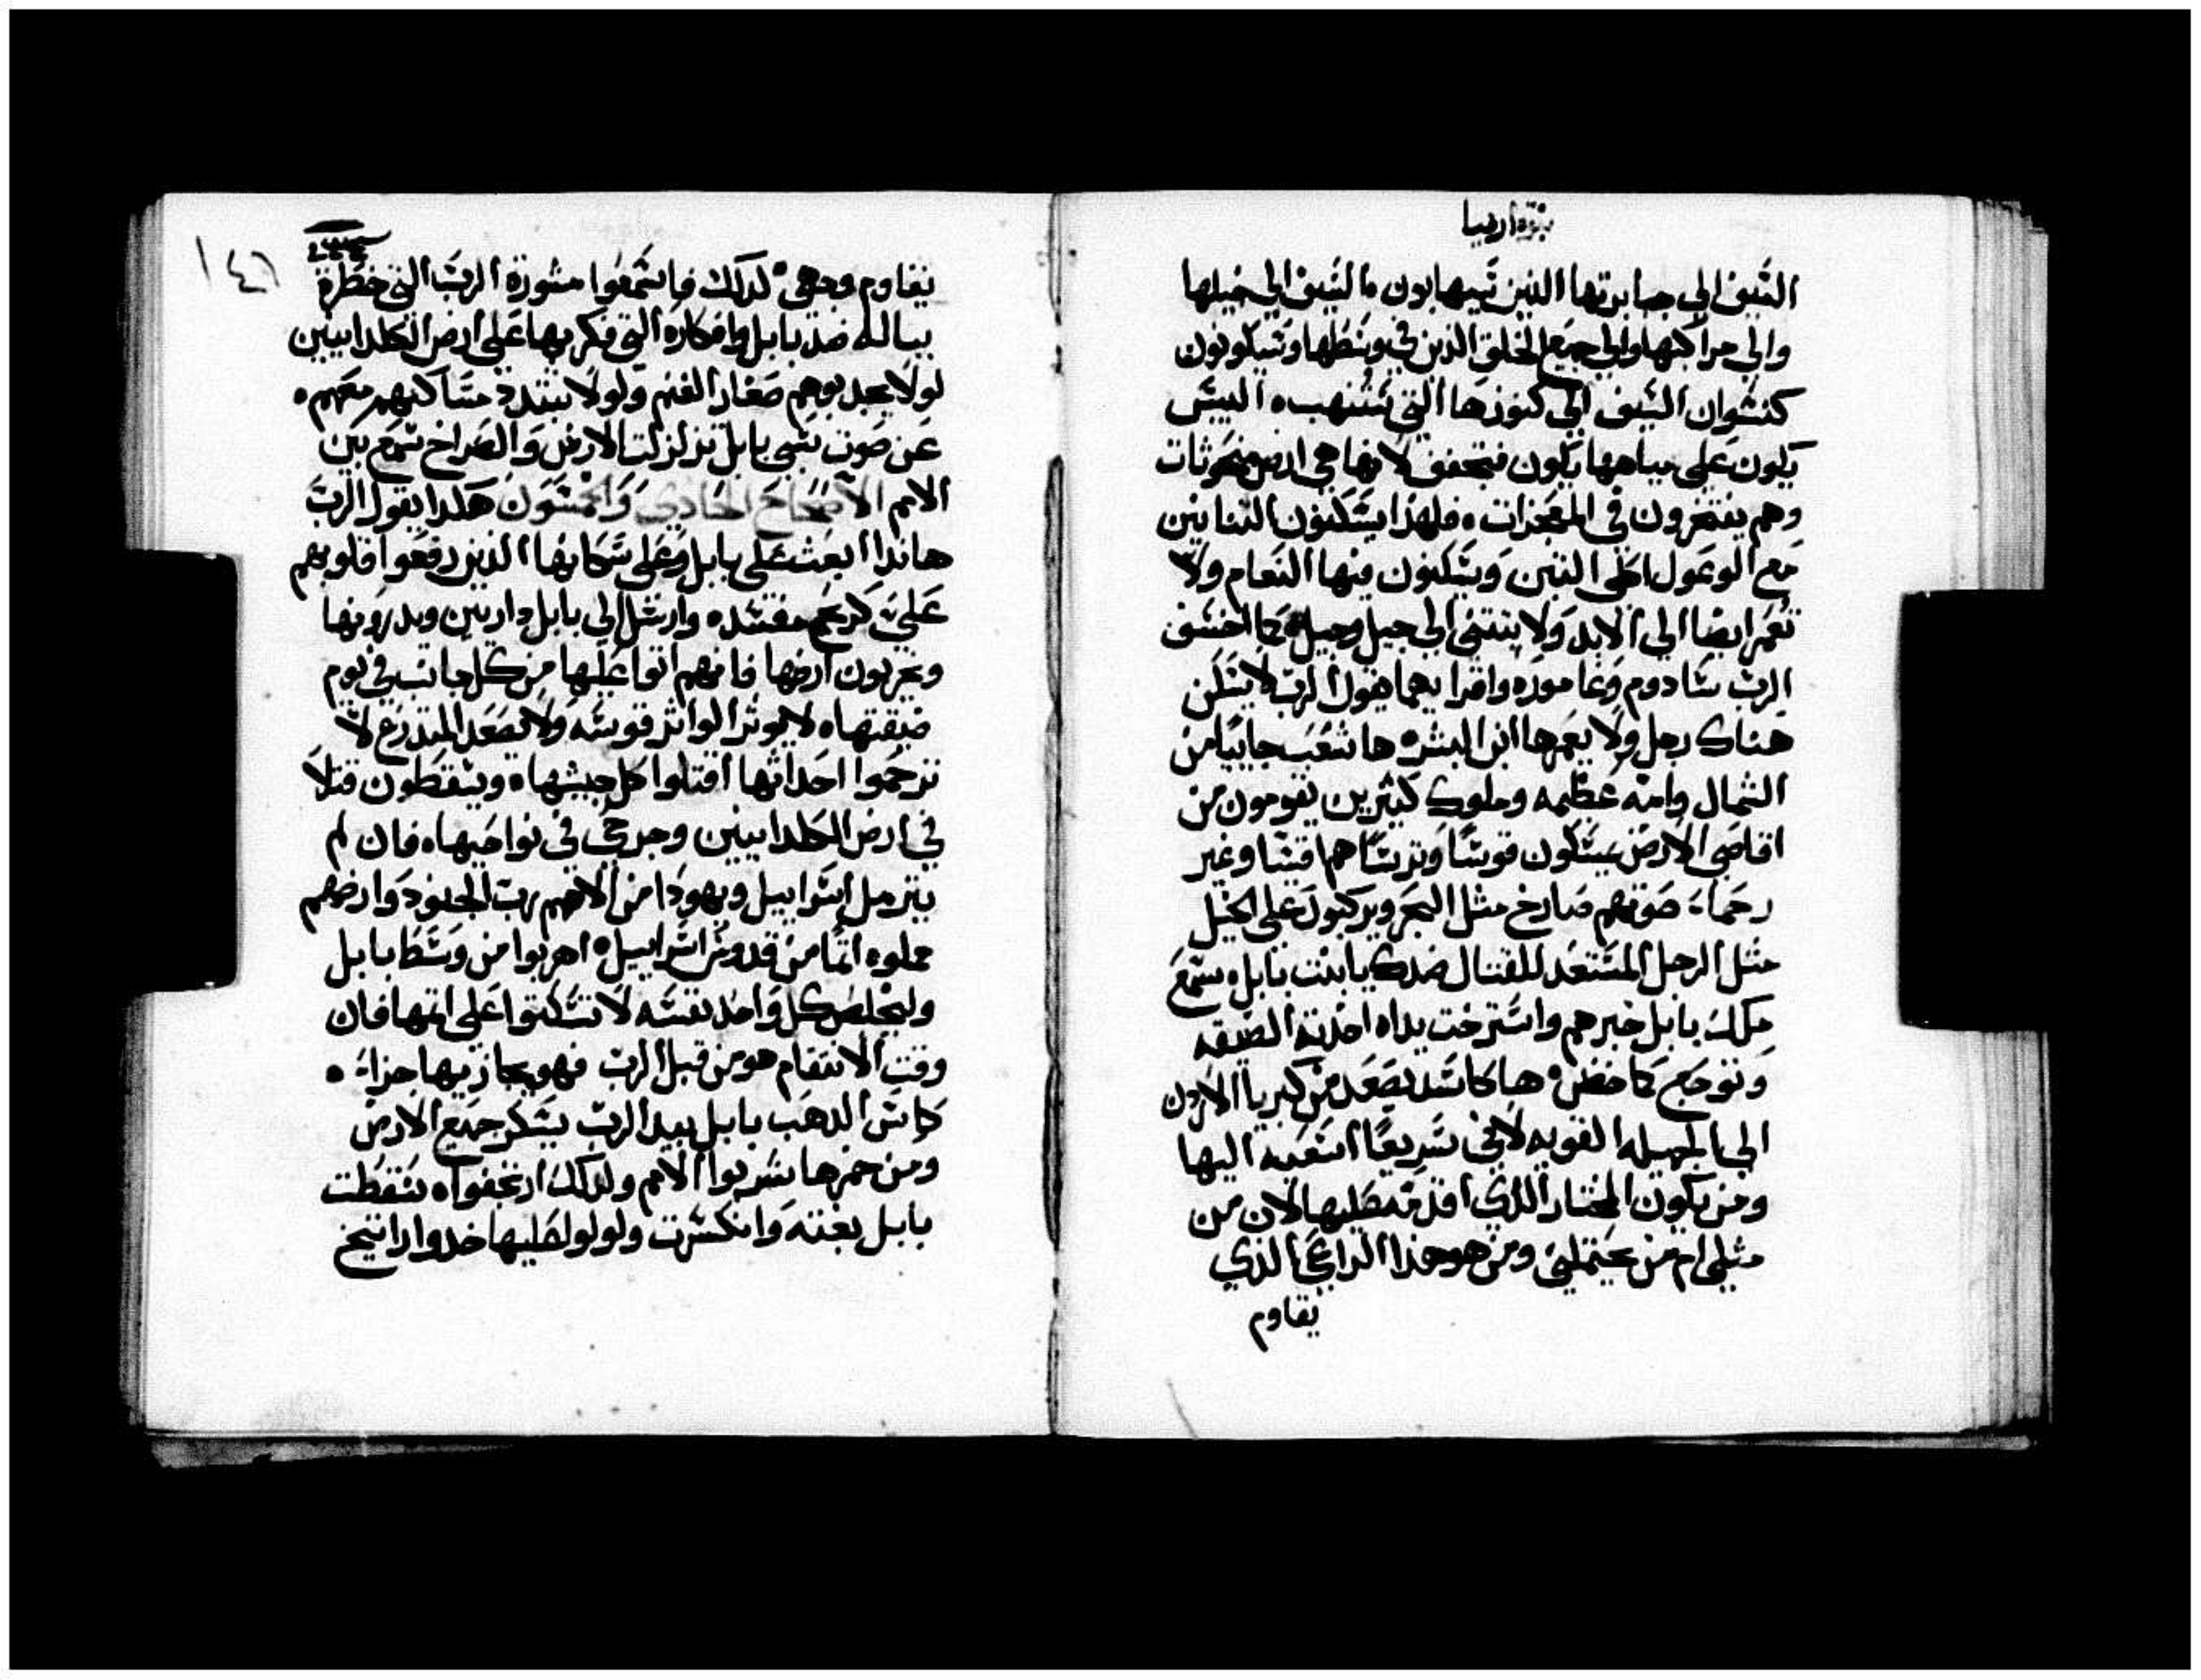 نبوة ارميا
السَيف الي جبابرتها الذين سَيهابون ه السَيف الي خيلها
والي مراكبها والي جميع الخلق الذين في وسَطها وسَيكونون
كنسَوان السَيف الي كنوزها التي سَتنهب ه اليبسَ
يكون علي مياهها يكون فتجفف لانها هي ارض منحوثات
وهم يفتخرون في المعجزات ه فلهذا يسَكنون التنانين
مع الوعول اكلي التين وَيسَكنون فيها النعام ولا
تعمر ايضا الي الابد وَلا يبتني الي جيل وجيل ه كما اخسَف
الرب سَادوم وَغاموره واقرابهما يقول الرب لا يسَكن
هناك رجل ولا يعمرها ابن البشر ه ها شعَب جاييًا من
الشمال وامه عَظيمه وملوك كثيرين يقومون من
اقاصي الارض يمسَكون قوسًَا وترسًَا هم اقسَا وغير
رحماء صوتهم صارخ مثل البحر ويركبون على الخيل
مثل الرجل المسَتعد للقتال ضدك يا بنت بابل ه سَمع
ملك بابل خبرهم واسَترخت يداه اخدته الضيقه
وَتوجع كماخض ه ها كاسَد يصَعَد من كبريا الاردن
الي الجميله القويه لاني سَريعًا اسَعيه اليها
ومن يكون المختار الذي اقدمه عليها لان من
مثلي ام من يحتملني ومن هو هذا الراعي الذي
يقاوم
١٤٦
يقاوم وجهي ه لدلك فاسَمعوا مشورة الربَ التي خطرة
بباله ضد بابل وافكاره التي فكر بها عَلي ارض الكلدانيين
لولا يجدبوهم صَغار الغنم ولولا يتبدد مسَاكنهم معَهم ه
عَن صَوت سَبي بابل تزلزلت الارض وَالصَراخ سَمع بين
الامم الاصَحاحَ الحَادي وَالخمسَون هكدا يقول الربَ
هاندا ابعَث عَلي بابل وعَلي سَكانها الذين رفعَوا قلوبهم
عَليَ كريح مفسَده وارسَل الي بابل داريين ويدرونها
ويخربون ارضها فانهم اتوا عَليها من كل جانب في يوم
ضيقتها ه لا يوثر الواثر قوسَه وَلا يصَعَد المتدرع لا
ترحمَوا احداثها اقتلوا كل جيشها ه ويسَقطون قتلاَ
في ارض الكلدانيين وجرحي في نواحيها ه فان لم
يترمل اسَراييل ويهودا من الاههم رب الجنود وَارضهم
مملوه اثمًا من قدوسَ اسَراييل ه اهربوا من وسَط بابل
وليخلص كل وَاحد نفسَه لا تسَكتوا عَلي اثمها فان
وقت الانتقام هو من قبل الرب فهو يجازيها جزاء ه
كاسَ الدهَب بابل بيد الرب يسَكر جميع الارض
ومن خمرها شربوا الامم ولدلك ارتجفوا ه سَقطت
بابل بغتة وَانكسَرت ولولوا عَليها خدوا راتينج